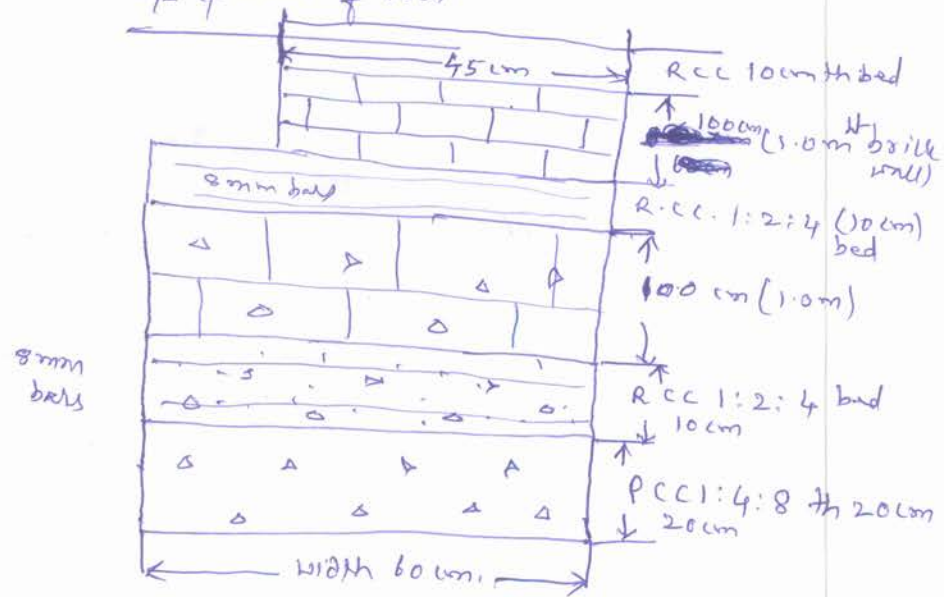 45 cm
RCC 10cm th bed
100cm (1.0m Ht brick
wall)
8 mm bars
R.C.C. 1:2:4 (10 cm)
bed
100 cm (1.0m)
8 mm
bars
RCC 1:2:4 bed
10 cm
PCC 1:4:8 th 20cm
20cm
width 60 cm.